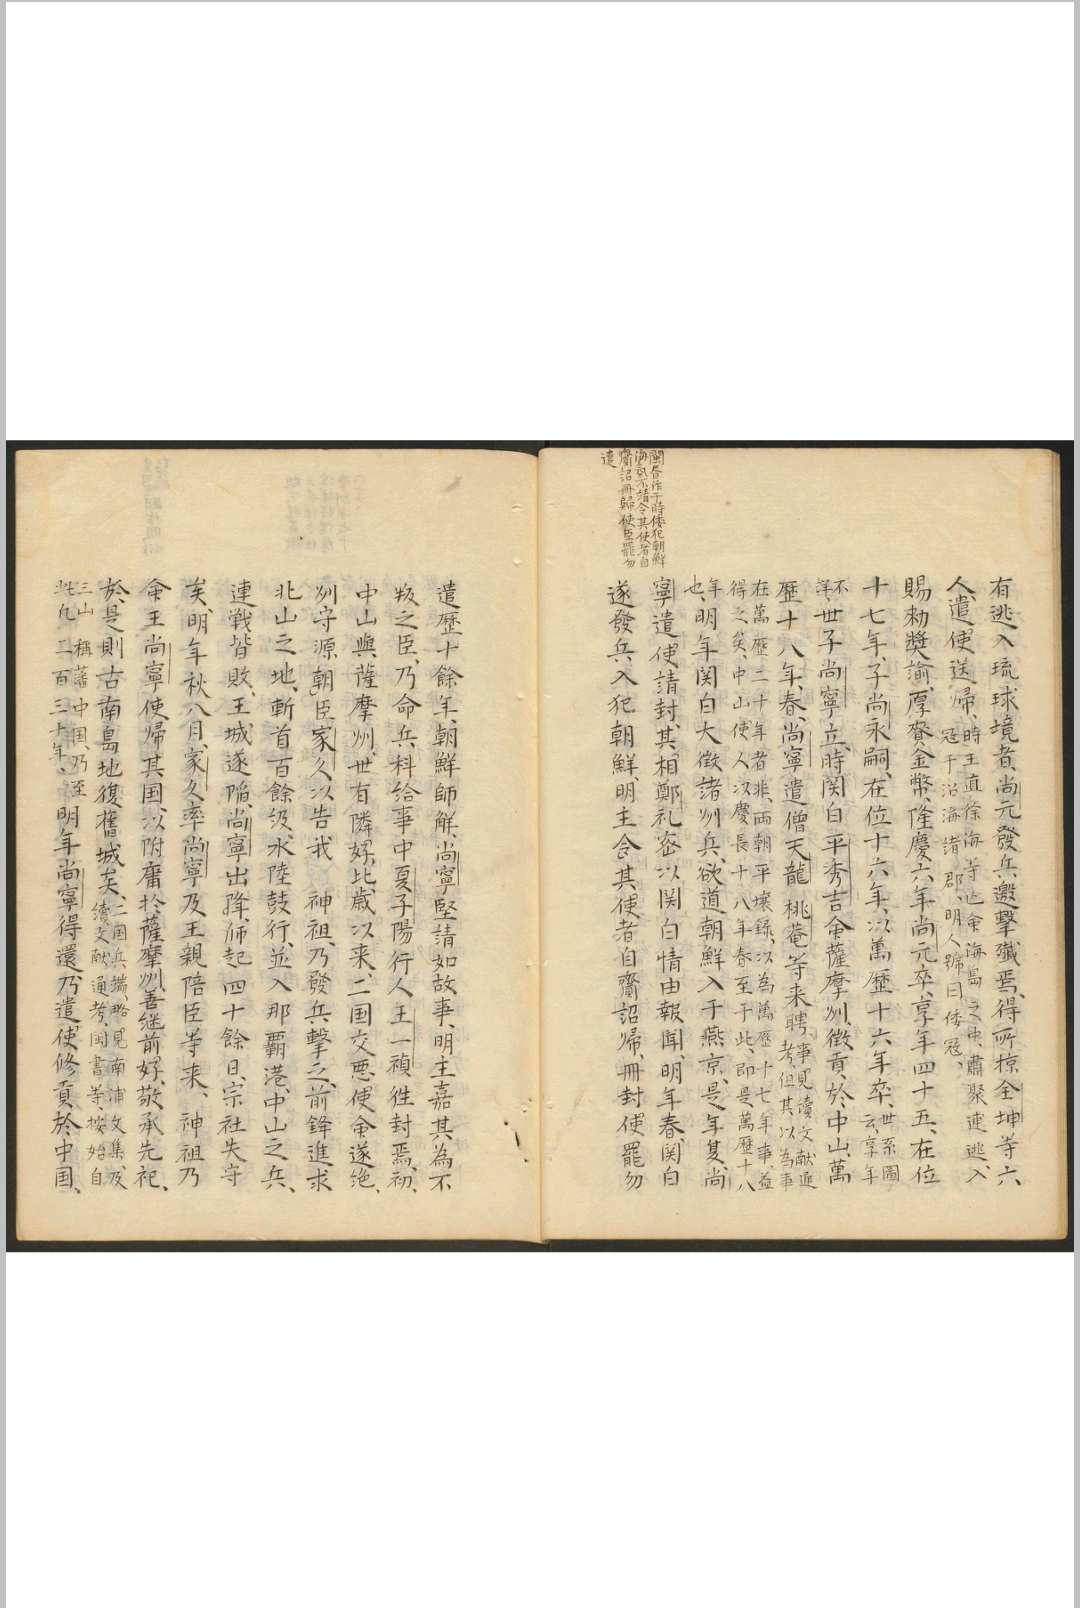 閩𦤺作于時倭犯朝鮮
海氛不靖令其使者自
齎詔冊歸使臣罷勿
遣
有逃入琉球境者、尚元發兵邀擊殲焉、得所掠全坤等六
人、遣使送歸、時王直徐海等亡命海島之中、嘯聚逋逃、入
寇于沿海諸郡、明人號曰倭寇、
賜勅獎諭、厚賚金幣、隆慶六年尚元卒、享年四十五、在位
十七年、子尚永嗣、在位十六年、以萬歷十六年卒、世系圖
云、享年
不
詳、世子尚寧立、時関白平秀吉命薩摩州、徵貢於中山、萬
歷十八年春、尚寧遣僧天龍桃菴等来聘、事見續文献通
考、但其以為事
在萬歷二十年者非、両朝平壌録、以為萬歷十七年事、益
得之矣、中山使人以慶長十八年春至于此、即是萬歷十八
年
也、明年関白大徵諸州兵、欲道朝鮮入于燕京、是年夏尚
寧遣使請封、其相鄭礼密以関白情由報聞、明年春関白
遂發兵、入犯朝鮮、明主令其使者自齎詔歸、冊封使罷勿
遣歷十餘年、朝鮮師解、尚寧堅請如故事、明主嘉其為不
叛之臣、乃命兵科給事中夏子陽行人王一禎徃封焉、初、
中山與薩摩州、世有隣好、比歳以来、二国交悪、使命遂絶、
州守源朝臣家久、以告我 神祖、乃發兵擊之、前鋒進求
北山之地、斬首百餘級、水陸鼓行、並入那覇港、中山之兵、
連戦皆敗、王城遂陥、尚寧出降、師起四十餘日、宗社失守
矣、明年秋八月、家久率尚寧及王親陪臣等来、 神祖乃
命王尚寧使帰其国、以附庸於薩摩州、善継前好、敬承先祀、
於是則古南島地復舊城矣、二国兵端、略見南浦文集、及
續文献通考、国書等、按始自
三山稱藩中国、乃至
此凡二百三十年、明年尚寧得還、乃遣使修貢於中国、